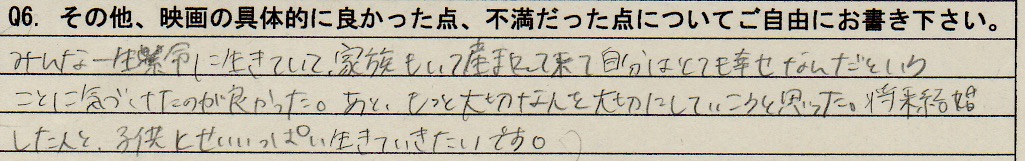 Q6. その他、映画の具体的に良かった点、不満だった点についてご自由にお書き下さい。
みんな一生懸命に生きていて、家族もいて産まれて来て自分はとても幸せなんだという
ことに気づけたのが良かった。あと、もっと大切な人を大切にしていこうと思った。将来結婚
した人と、子供とせいいっぱい生きていきたいです。